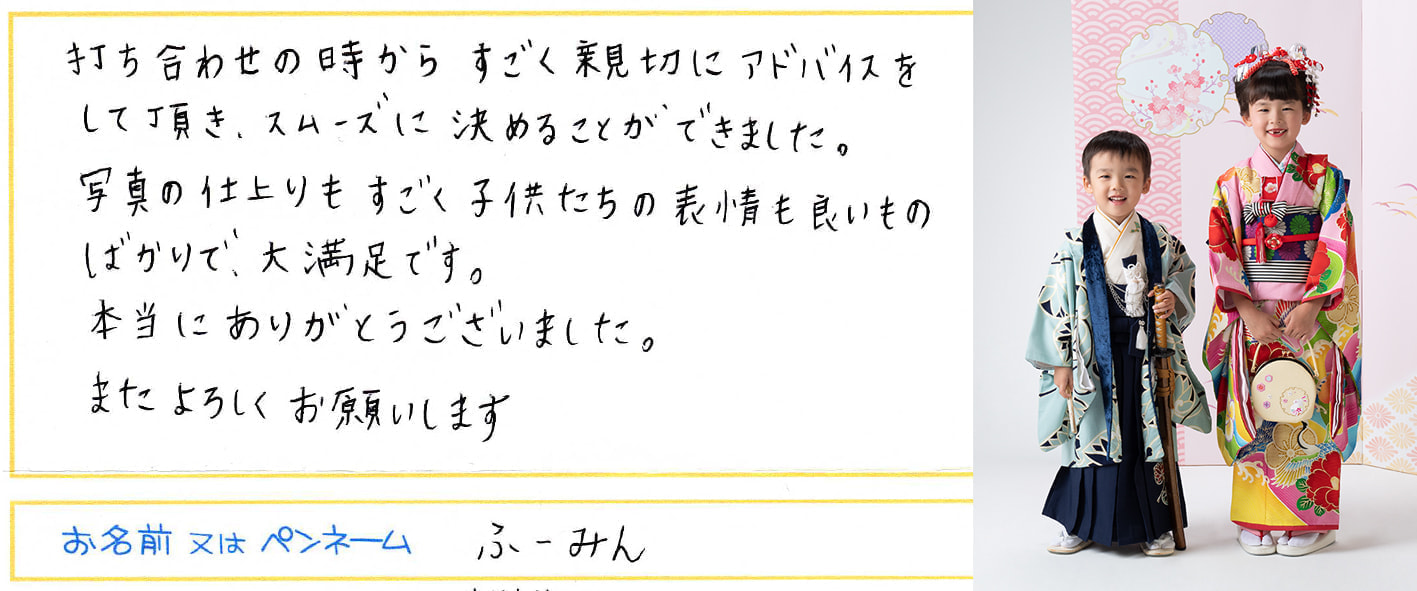 打ち合わせの時から すごく親切にアドバイスを
して頂き、スムーズに決めることができました。
写真の仕上りもすごく子供たちの表情も良いもの
ばかりで、大満足です。
本当にありがとうございました。
またよろしくお願いします
お名前 又は ペンネーム ふーみん